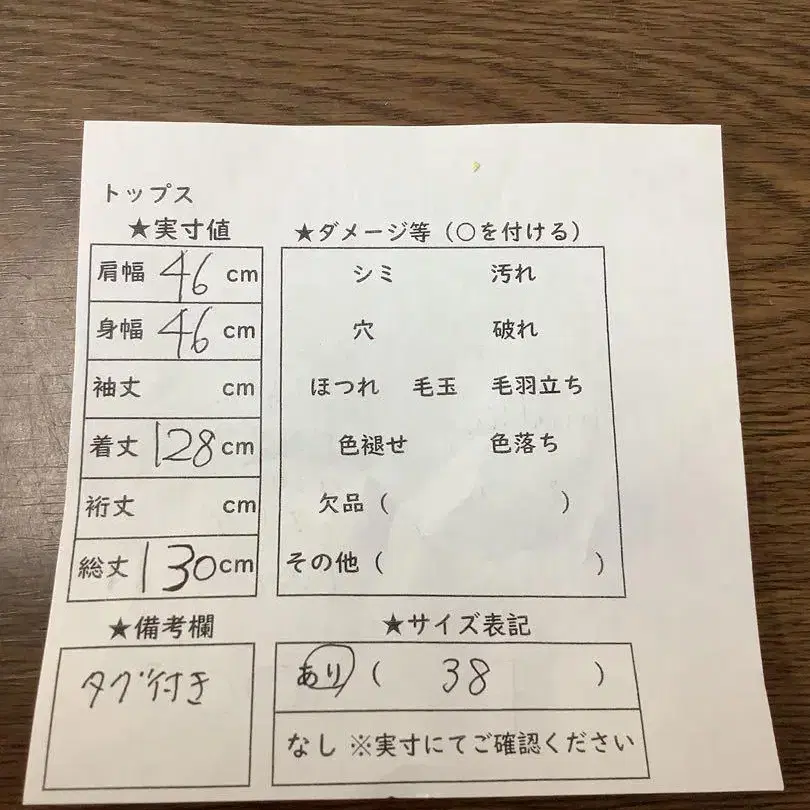 トップス
★実寸値
肩幅 46 cm
身幅 46 cm
袖丈 cm
着丈 128 cm
裄丈 cm
総丈 130 cm
★ダメージ等（○を付ける）
シミ 汚れ
穴 破れ
ほつれ 毛玉 毛羽立ち
色褪せ 色落ち
欠品（ ）
その他（ ）
★備考欄
タグ付き
★サイズ表記
あり（ 38 ）
なし ※実寸にてご確認ください